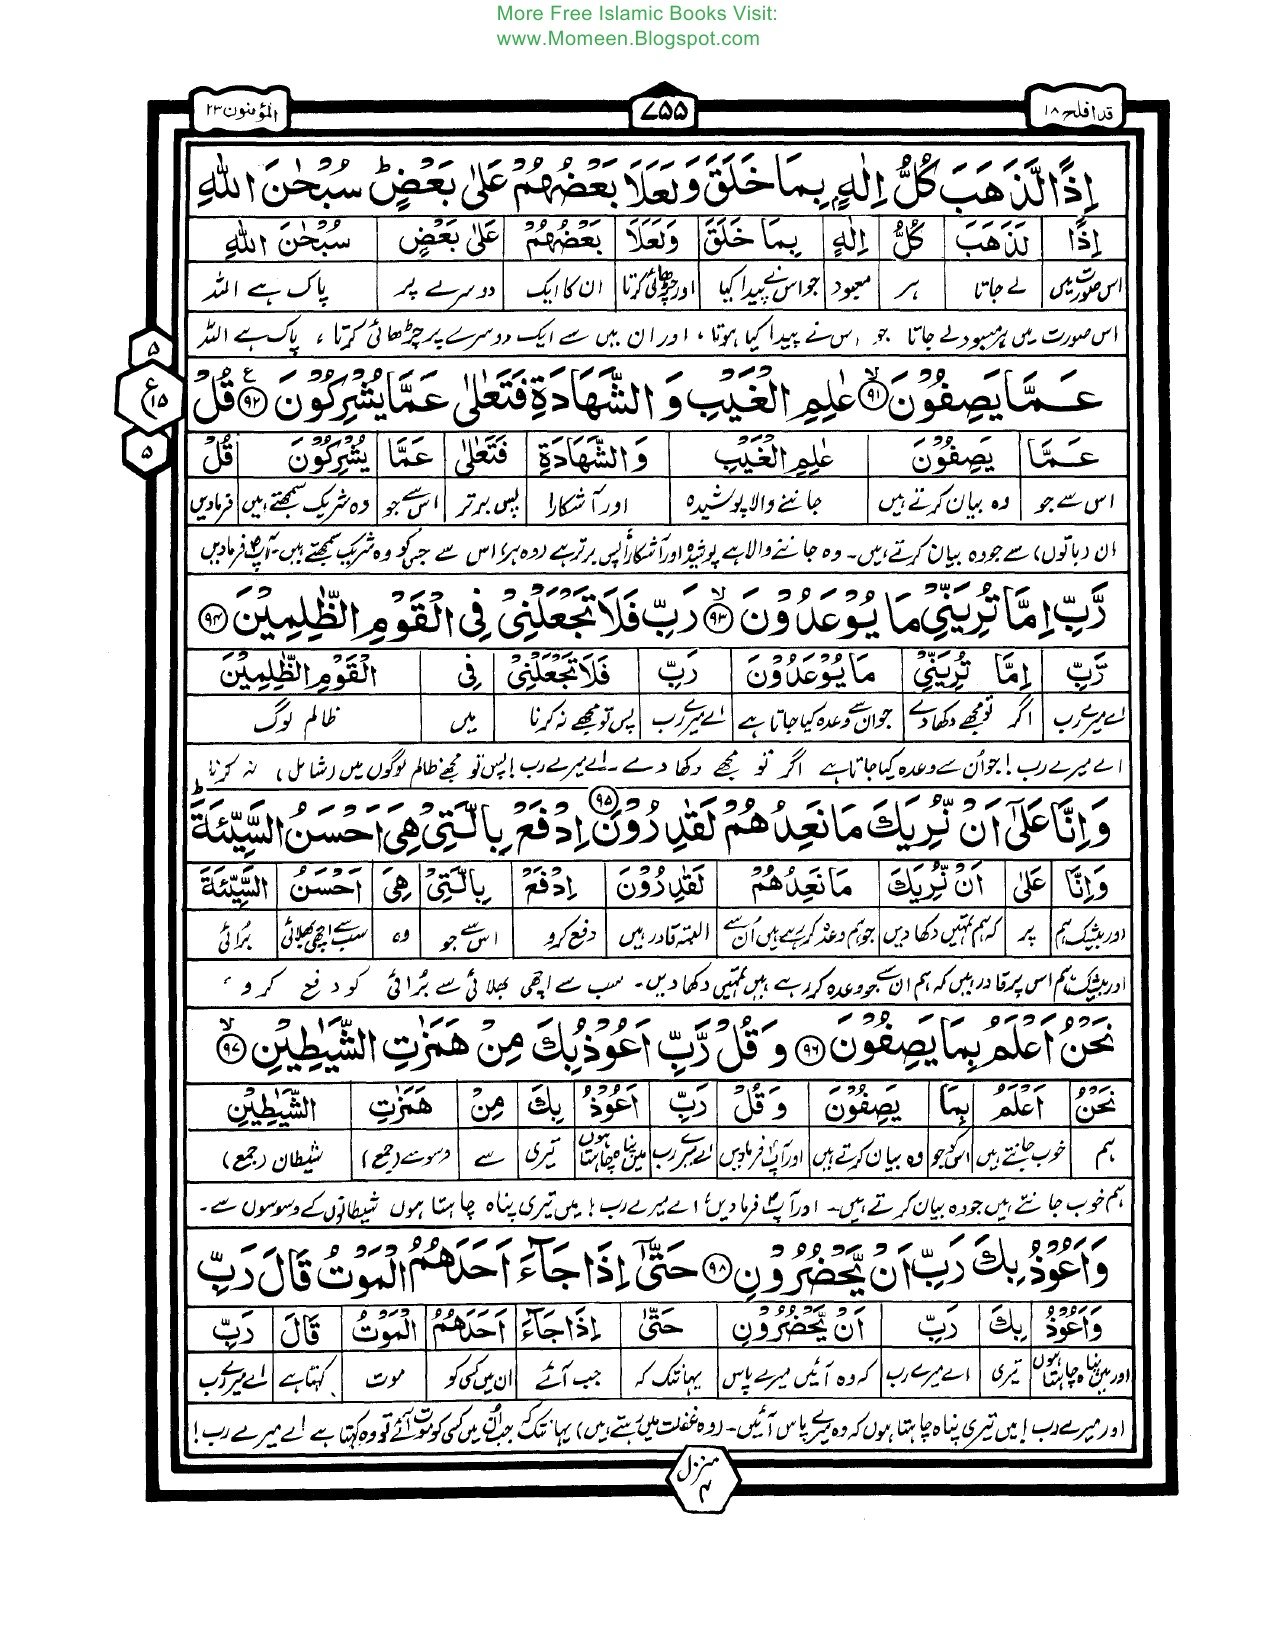 More Free Islamic Books Visit:
www.Momeen.Blogspot.com
قد افلح ۱۸
۷۵۵
المؤمنون ۲۳
اِذًا لَّذَهَبَ كُلُّ اِلٰهٍۭ بِمَا خَلَقَ وَلَعَلَا بَعْضُهُمْ عَلٰى بَعْضٍ ؕ سُبْحٰنَ اللّٰهِ
اِذًا لَذَهَبَ كُلُّ اِلٰهٍ بِمَا خَلَقَ وَلَعَلَا بَعْضُهُمْ عَلٰى بَعْضٍ سُبْحٰنَ اللّٰهِ
اس صورت میں لے جاتا ہر معبود جو اس نے پیدا کیا اور چڑھائی کرتا ان کا ایک دوسرے پر پاک ہے اللہ
اس صورت میں ہر معبود لے جاتا جو اس نے پیدا کیا ہوتا ، اور ان میں سے ایک دوسرے پر چڑھائی کرتا ، پاک ہے اللہ
۵
ع
۱۵
۵
عَمَّا يَصِفُوْنَ ۙ۹۱ عٰلِمِ الْغَيْبِ وَ الشَّهَادَةِ فَتَعٰلٰى عَمَّا يُشْرِكُوْنَ ۹۲ ع قُلْ
عَمَّا يَصِفُوْنَ عٰلِمِ الْغَيْبِ وَالشَّهَادَةِ فَتَعٰلٰى عَمَّا يُشْرِكُوْنَ قُلْ
اس سے جو وہ بیان کرتے ہیں جاننے والا پوشیدہ اور آشکارا پس برتر اس سے جو وہ شریک سمجھتے ہیں فرمادیں
ان (باتوں) سے جو وہ بیان کرتے ہیں۔ وہ جاننے والا ہے پوشیدہ اور آشکارا پس برتر ہے (وہ ہر) اس سے جس کو وہ شریک سمجھتے ہیں۔ آپؐ فرمادیں
رَّبِّ اِمَّا تُرِيَنِّىْ مَا يُوْعَدُوْنَ ۙ۹۳ رَبِّ فَلَا تَجْعَلْنِىْ فِى الْقَوْمِ الظّٰلِمِيْنَ ۹۴
رَّبِّ اِمَّا تُرِيَنِّىْ مَا يُوْعَدُوْنَ رَبِّ فَلَا تَجْعَلْنِىْ فِى الْقَوْمِ الظّٰلِمِيْنَ
اے میرے رب اگر تو مجھے دکھا دے جو ان سے وعدہ کیا جاتا ہے اے میرے رب پس تو مجھے نہ کرنا میں ظالم لوگ
اے میرے رب ! جو اُن سے وعدہ کیا جاتا ہے اگر تو مجھے دکھا دے ۔ اے میرے رب ! پس تو مجھے ظالم لوگوں میں (شامل) نہ کرنا
وَ اِنَّا عَلٰٓى اَنْ نُّرِيَكَ مَا نَعِدُهُمْ لَقٰدِرُوْنَ ۹۵ اِدْفَعْ بِالَّتِىْ هِىَ اَحْسَنُ السَّيِّئَةَ ؕ
وَاِنَّا عَلٰى اَنْ نُّرِيَكَ مَا نَعِدُهُمْ لَقٰدِرُوْنَ اِدْفَعْ بِالَّتِىْ هِىَ اَحْسَنُ السَّيِّئَةَ
اور بیشک ہم پر کہ ہم تمہیں دکھا دیں جو ہم وعدہ کر رہے ہیں اُن سے البتہ قادر ہیں دفع کرو اس سے جو وہ سب سے اچھی بھلائی بُرائی
اور بیشک ہم اس پر قادر ہیں کہ ہم ان سے جو وعدہ کر رہے ہیں تمہیں دکھا دیں۔ سب سے اچھی بھلائی سے بُرائی کو دفع کرو ،
نَحْنُ اَعْلَمُ بِمَا يَصِفُوْنَ ۹۶ وَ قُلْ رَّبِّ اَعُوْذُ بِكَ مِنْ هَمَزٰتِ الشَّيٰطِيْنِ ۙ۹۷
نَحْنُ اَعْلَمُ بِمَا يَصِفُوْنَ وَ قُلْ رَبِّ اَعُوْذُ بِكَ مِنْ هَمَزٰتِ الشَّيٰطِيْنِ
ہم خوب جانتے ہیں اس کو جو وہ بیان کرتے ہیں اور آپؐ فرمادیں اے میرے رب میں پناہ چاہتا ہوں تیری سے وسوسے (جمع) شیطان (جمع)
ہم خوب جانتے ہیں جو وہ بیان کرتے ہیں۔ اور آپؐ فرمادیں! اے میرے رب! میں تیری پناہ چاہتا ہوں شیطانوں کے وسوسوں سے۔
وَاَعُوْذُ بِكَ رَبِّ اَنْ يَّحْضُرُوْنِ ۹۸ حَتّٰٓى اِذَا جَآءَ اَحَدَهُمُ الْمَوْتُ قَالَ رَبِّ
وَاَعُوْذُ بِكَ رَبِّ اَنْ يَّحْضُرُوْنِ حَتّٰى اِذَا جَآءَ اَحَدَهُمُ الْمَوْتُ قَالَ رَبِّ
اور میں پناہ چاہتا ہوں تیری اے میرے رب کہ وہ آئیں میرے پاس یہانتک کہ جب آئے ان میں کسی کو موت کہتا ہے اے میرے رب
اور میرے رب! میں تیری پناہ چاہتا ہوں کہ وہ میرے پاس آئیں۔ (وہ غفلت میں رہتے ہیں) یہانتک کہ جب اُن میں کسی کو موت آئے تو وہ کہتا ہے اے میرے رب!
منزل ۴